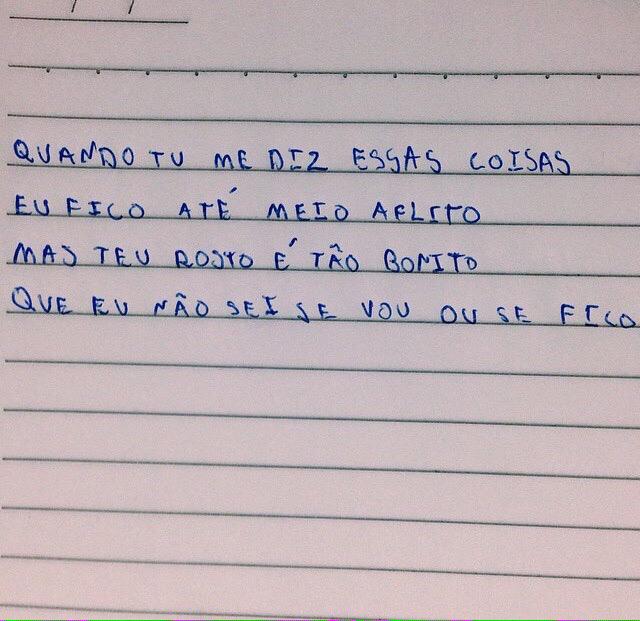 QUANDO TU ME DIZ ESSAS COISAS
EU FICO ATÉ MEIO AFLITO
MAS TEU ROSTO É TÃO BONITO
QUE EU NÃO SEI SE VOU OU SE FICO